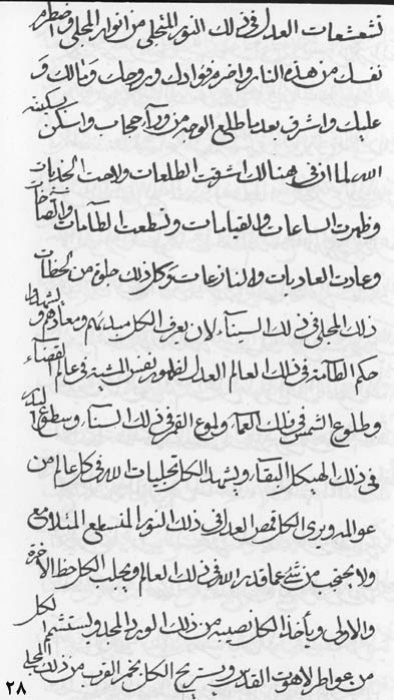 تشعشعات العدل فى ذلك النور المتجلى من انوار المجلى واضطرم
نفسك من هذه النار واخرم فؤادك وروحك ومالك و
عليك واشرق بعد ما طلع الوجه من ورآء حجاب واسكن بسكينة
الله لما ان فى هنالك اشرقت الطلعات ولاحت الجذبات
وظهرت الساعات والقيامات ونسطعت الطآمات والصآخات
وعادت العاديات والنازعات وكل ذلك خلق من لحظات
ذلك المجلى فى ذلك السينآء لان يعرف الكل مبدئهم ومعادهم و ليشهدوا
حكم الطآمة فى ذلك العالم العدل لظهور نفس المشية فى عالم القضآء
وطلوع الشمس فى ذلك العمآء ولموع القمر فى ذلك السنآء وسطوع
فى ذلك الهيكل البقآء ويشهد الكل تجليات الله فى كل عالم من
عوالمه ويرى الكل قمص العدل فى ذلك النور المنسطع المتلامع
ولا يحتجب من شئ عما قدر الله فى ذلك العالم ويجلب الكل حظ الآخرة
والاولى وياخذ الكل نصيبه من ذلك الورد المجلى وليستشم الكل
من عواطر لاهوت القدس ويستريح الكل بخمر القرب من ذلك المجلى
٢٨